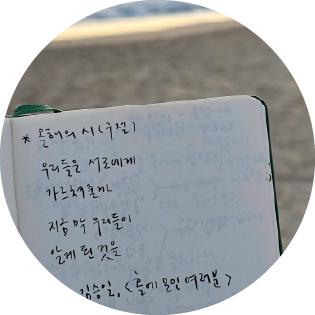 * 올해의 시(구절)
우리들은 서로에게
가르쳐줄까
지금 막 우리들이
알게 된 것을
김승일, <홀에 모인 여러분>